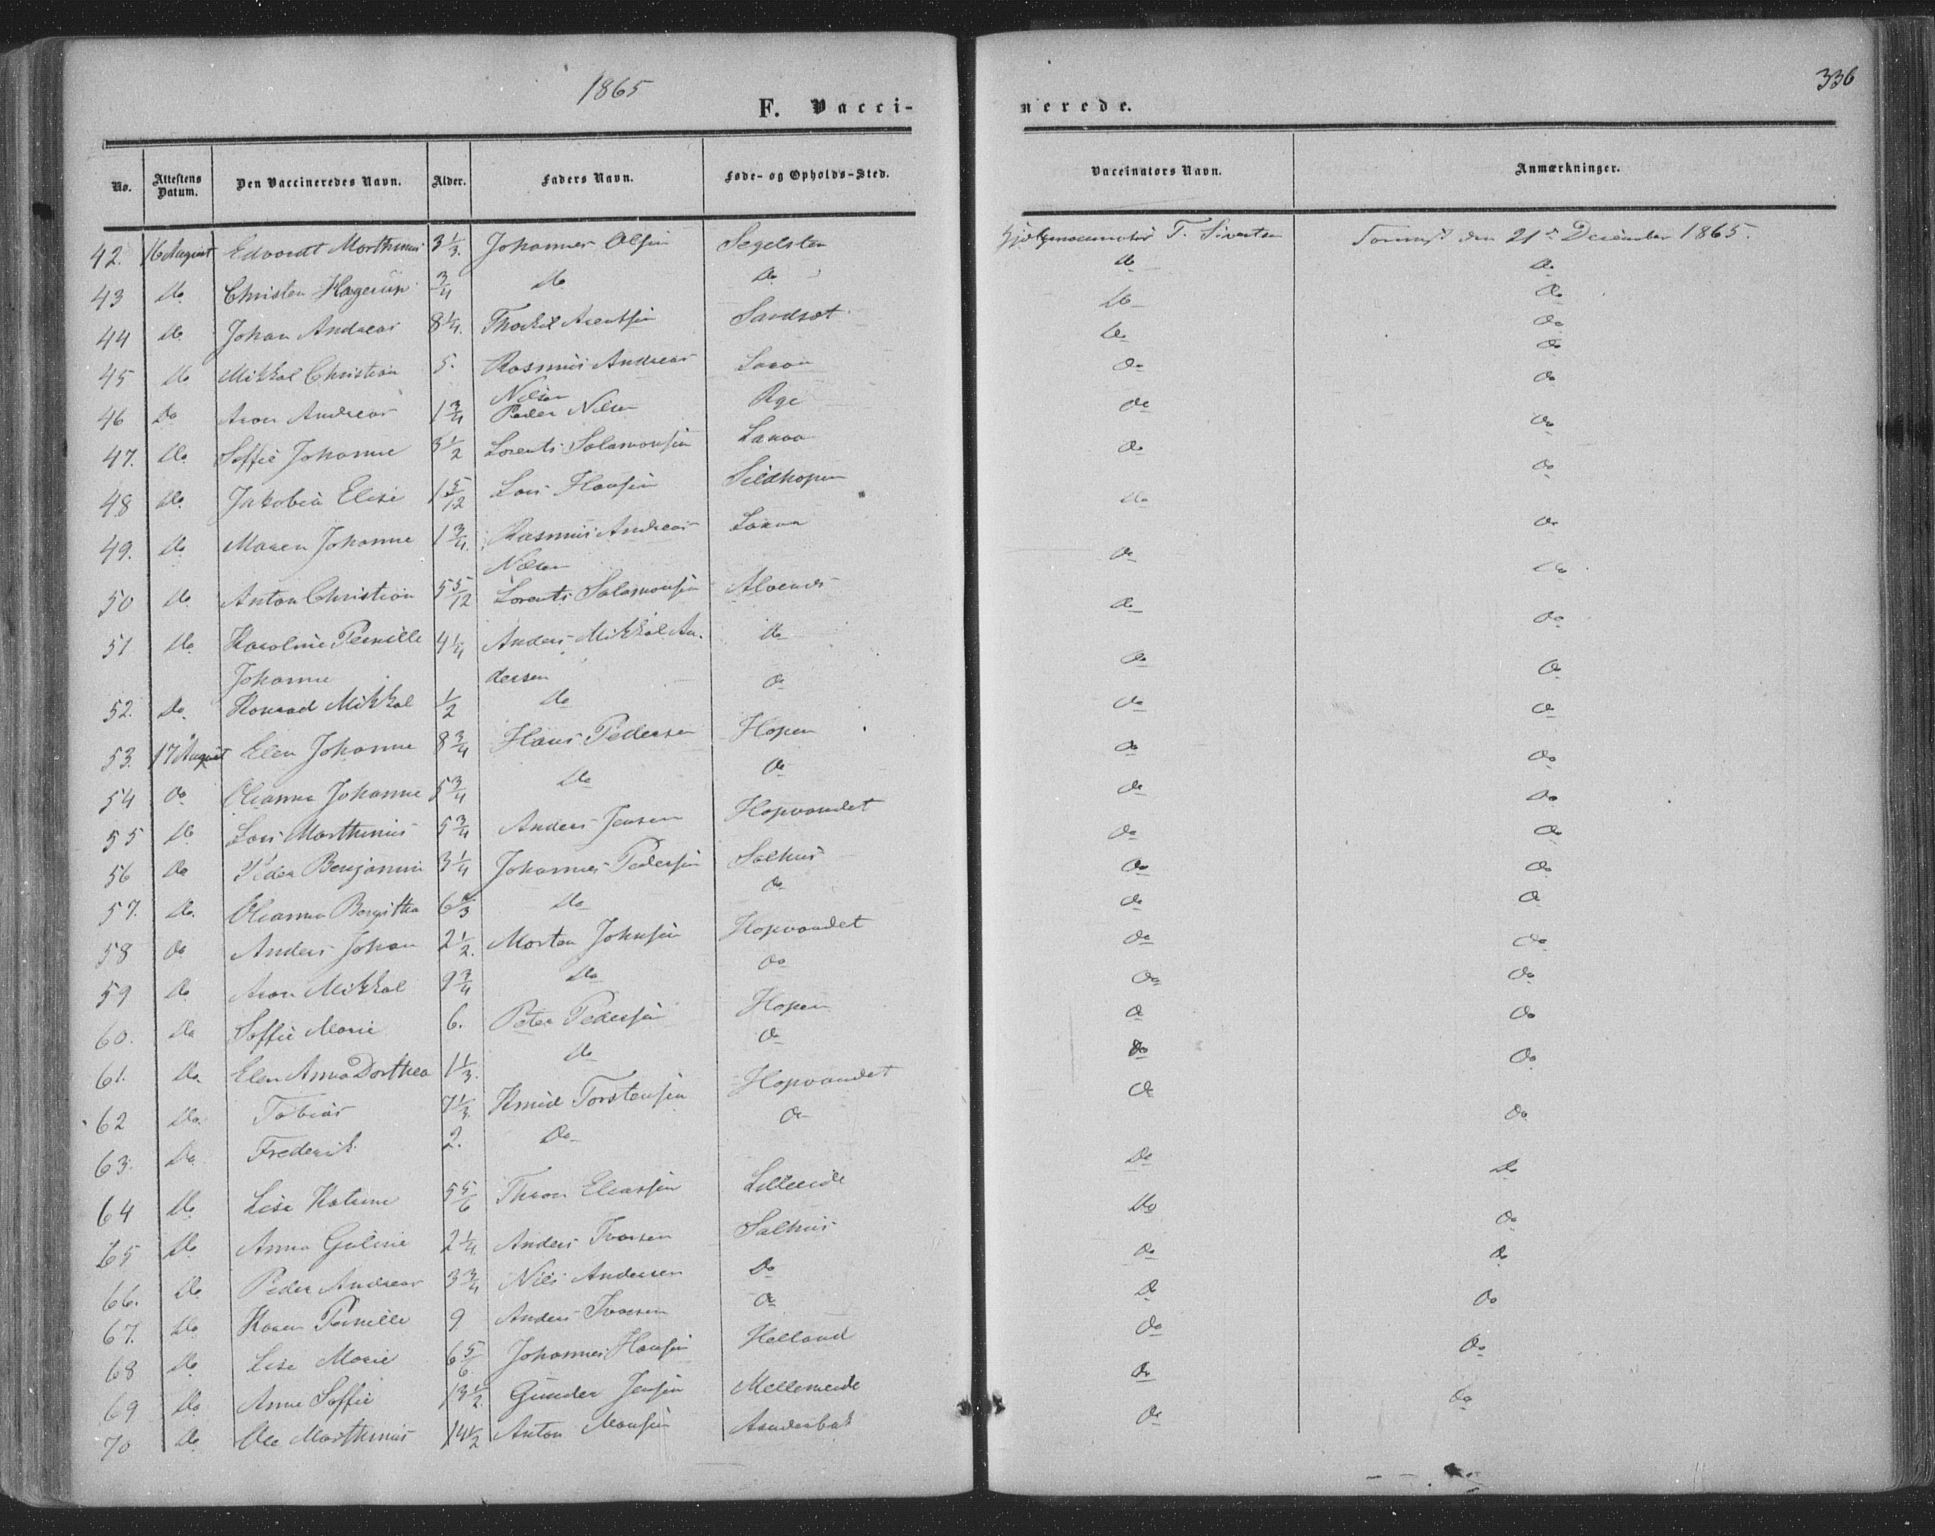 1865
336
F. Vacci-
nerede.
No. Attestens Datum. Den Vaccineredes Navn. Alder. Faders Navn. Føde- og Opholds-Sted. Vaccinators Navn. Anmærkninger.
42. 16 August Edvardt Morthinus 3 1/3. Johannes Olsen Segelsten T. Sivertsen den 21de December 1865.
43 Do Christen Hagerup 3/4 Do Do Do Do
44 Do Johan Andreas 8 1/4. Thorkel Arentsen Sandsøt Do Do
45 Do Mikkal Christian 5. Rasmus Andreas Do Do
Nilsen
46 Do Aron Andreas 1 3/4 Peder Nilsen Do Do
47. Do Soffie Johanne 3 1/2 Lorents Salamonsen Do Do
48 Do Jakobia Elise 1 5/12 Lars Hansen Sildhopen Do Do
49. Do Maren Johanne 1 3/4. Rasmus Andreas Do Do
Nilsen
50 Do Anton Christian 5 5/12 Lorents Salamonsen Alvenes Do Do
51 Do Karoline Pernille 4 1/4 Anders Mikkal An- Do Do Do
Johanne dersen
52. Do Konrad Mikkal 1/2 Do Do Do Do
53. 17 August Elen Johanne 8 3/4 Hans Pedersen Hopen Do Do
54 Do Olianna Johanne 5 3/4 Do Do Do Do
55 Do Lars Morthinus 5 3/4 Anders Jensen Hopvandet Do Do
56 Do Peder Benjamin 3 1/4 Johannes Pedersen Salhus Do Do
57. Do. Olianna Bergitha Do Do Do Do
58 Do Anders Johan 2 1/2. Morten Johnsen Hopvandet Do Do
59 Do Aron Mikkal 9 3/4 Do Do Do Do
60. Do Soffie Marie 6. Peter Pedersen Hopen Do Do
61. Do. Elen Anna Dorthea 1 1/3. Do Do Do Do
62 Do. Tobias 7 1/3. Knud Torstensen Hopvandet Do Do
63. Do Frederik 2. Do Do Do Do
64 Do Lise Katrine 5 5/6 Eliassen Lilleeide Do Do
65 Do Anna Guline 2 1/4. Anders Ivarsen Salhus Do Do
66. Do Peder Andreas 3 3/4 Nils Andersen Do Do Do
67. Do Karen Pernille 9 Anders Ivarsen Do Do Do
68 Do Lise Marie 6 5/6 Johannes Hansen Helland Do Do
69 Do Anne Soffie 13 1/2. Gunder Jensen Mellemeide Do Do
70 Do Ole Morthinus 14 1/2 Anton Monsen Do